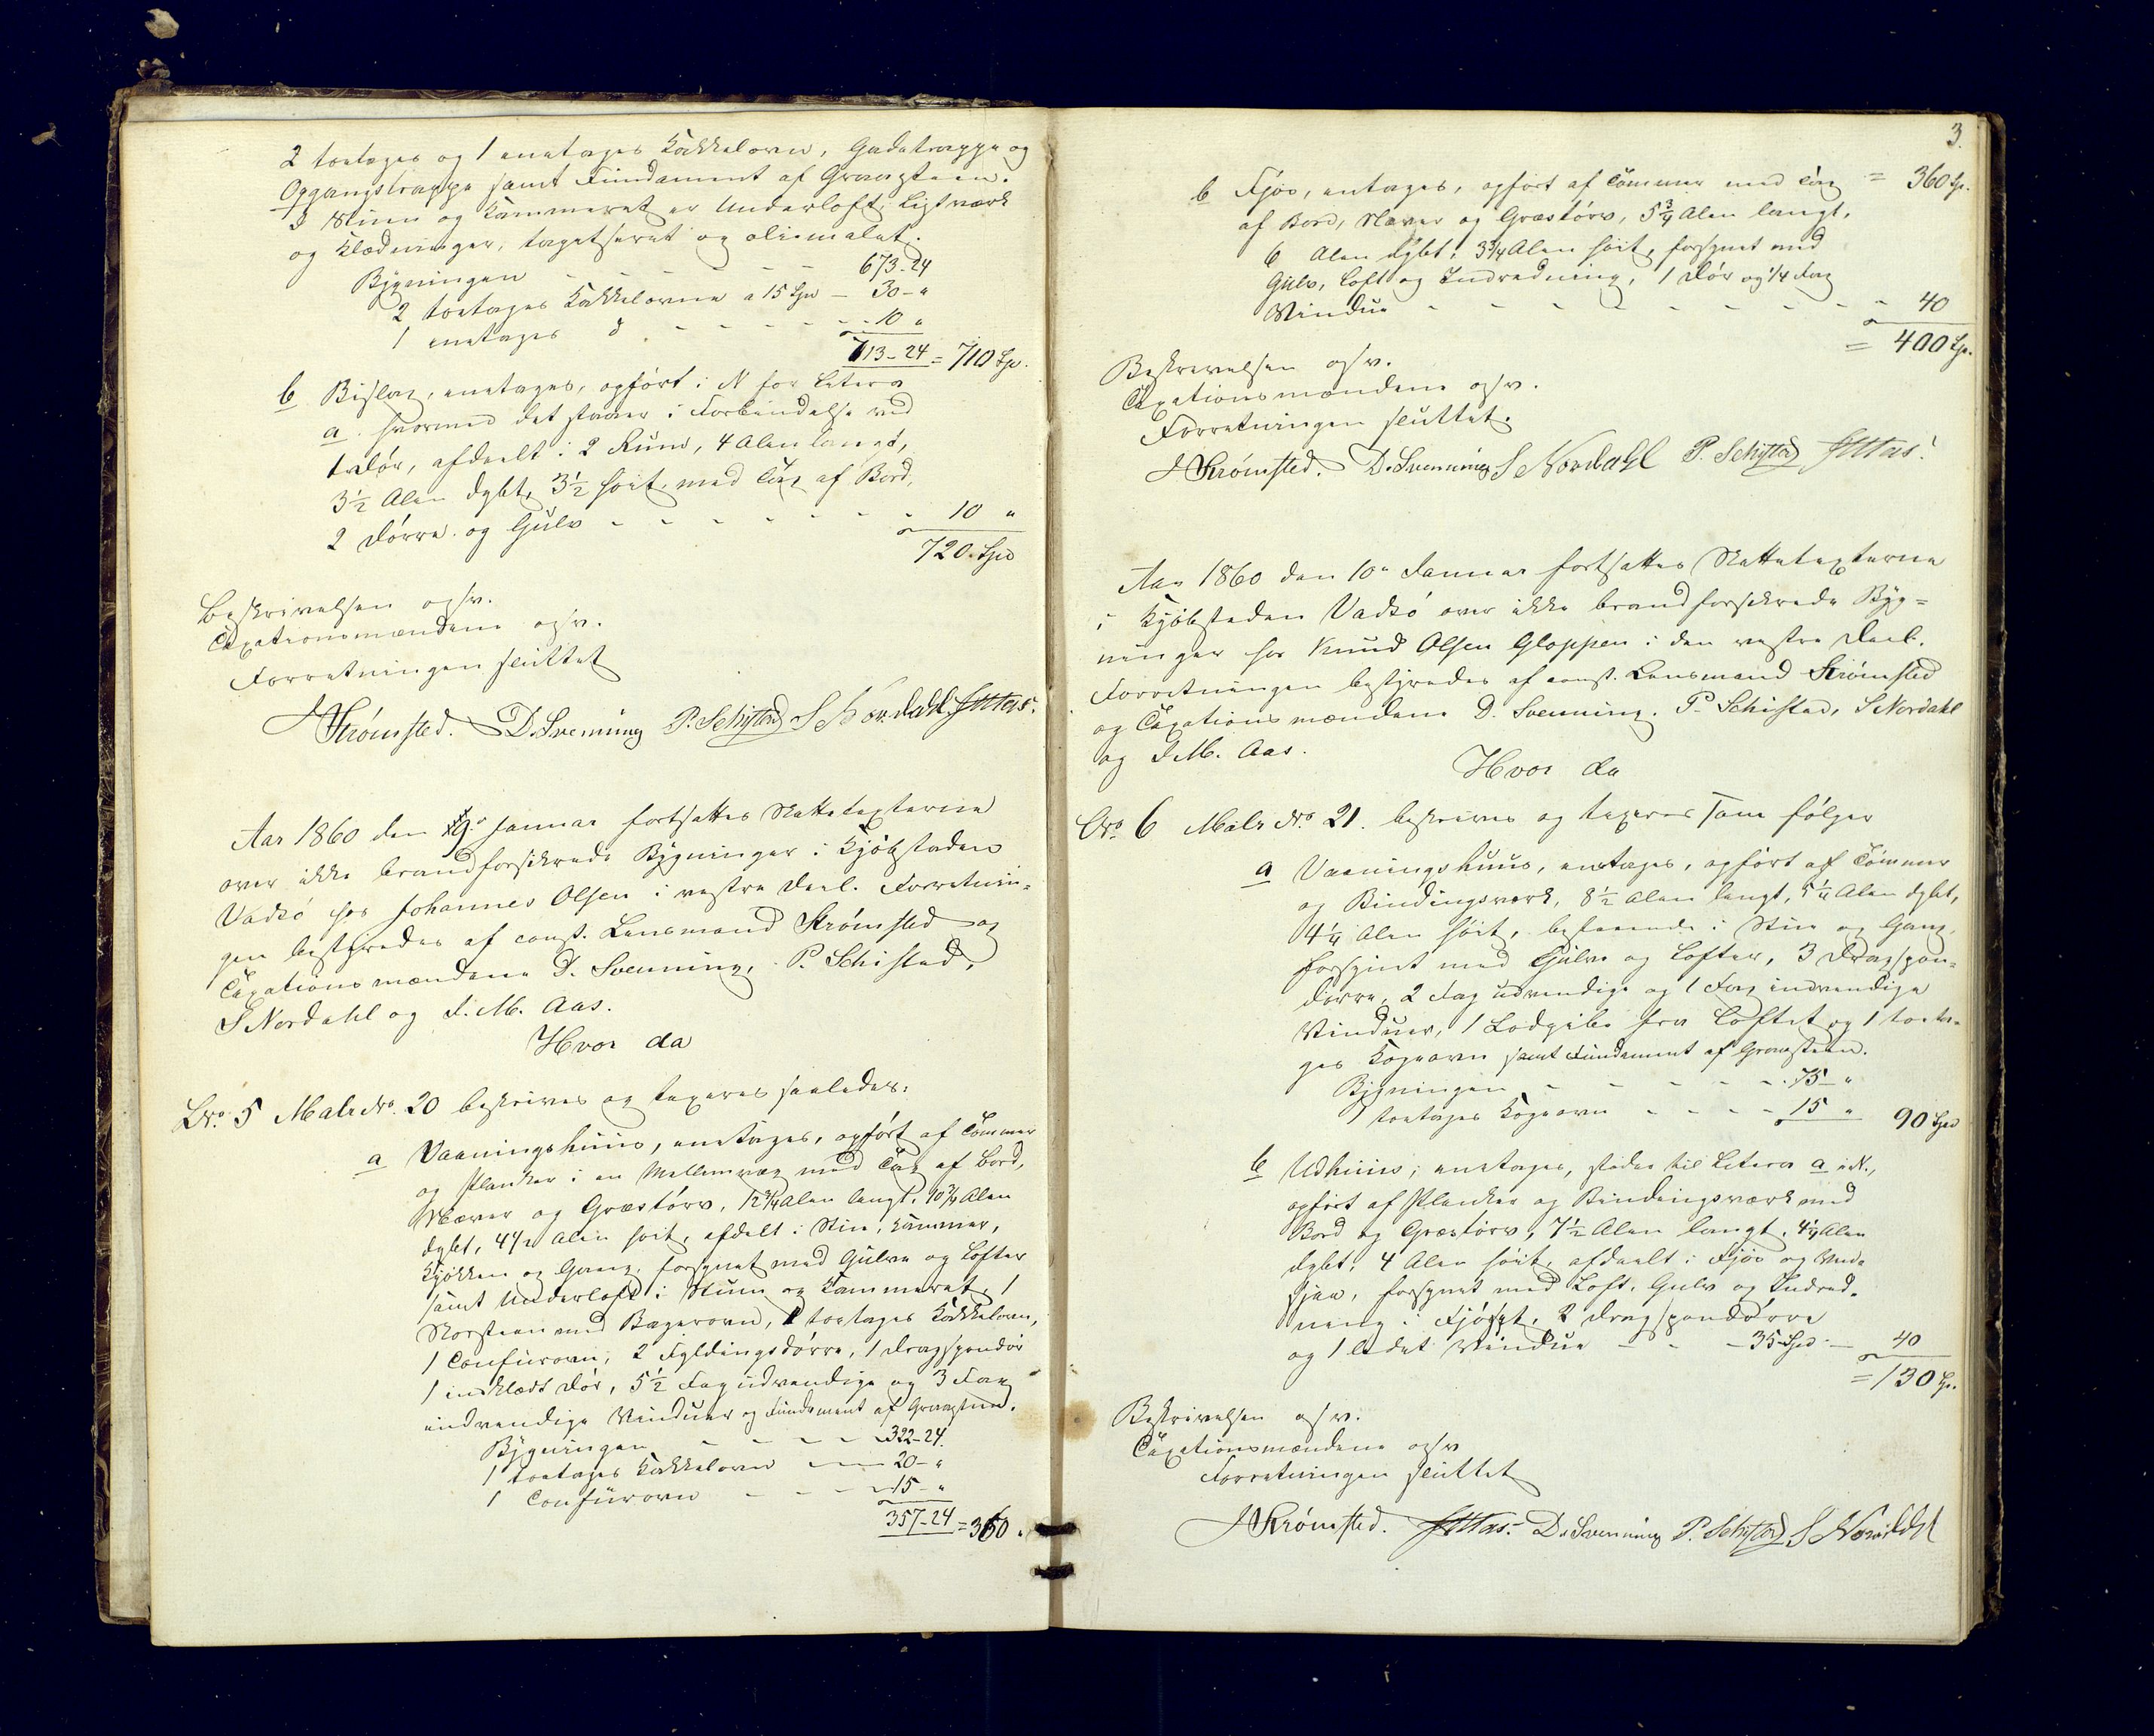 2 toetages og 1 enetages Kakkelovn, Gadetrappe og
Opgangstrappe samt Fundament af Graasteen.
I Stuen og Kammeret er Underloft, Listværk
og Klædninger, tapetseret og oliemalet.
Bygningen - - - - - - 673-24
2 toetages Kakkelovne a 15 Spd - 30 - "
1 enetages d - - - - - - 10 "
713-24 = 710 Sp.
b Bislag, enetages, opført i N for Litera
a hvormed det staaer i Forbindelse ved
1 Dør, afdeelt i 2 Rum, 4 Alen langt,
3½ Alen dybt, 3½ høit, med Tag af Bord,
2 Dørre og Gulv - - - - - - - 10 "
720. Spd
Beskrivelsen osv.
Taxationsmændene osv.
Forretningen sluttet
Strømsted. D. Svenning P. Schistad S Nordahl JMAas.
Aar 1860 den 9de Januar fortsattes Skattetaxterne
over ikke brandforsikrede Bygninger i Kjøbstaden
Vadsø hos Johannes Olsen i vestre Deel. Forretnin=
gen bestyredes af const. Lensmand Strømsted og
Taxationsmændene D. Svenning, P. Schistad,
S Nordahl og J. M. Aas.
Hvor da
LNo. 5 Matr No. 20 beskrives og taxeres saaledes:
a Vaaningshuus, enetages, opført af Tømmer
og Planker i en Mellemvæg med Tag af Bord,
Næver og Græstørv, 12¾ Alen langt, 10¾ Alen
dybt, 4½ Alen høit, afdelt i Stue, Kammer,
Kjøkken og Gang, forsynet med Gulve og Lofter
samt Underloft i Stuen og Kammeret, 1
Skorsteen med Bagerovn, 1 toetages Kakkelovn,
1 Comfurovn, 2 Fyldingsdørre, 1 Dragspondør
1 indklædt Dør, 5½ Fag udvendige og 3 Fag
indvendige Vinduer og Fundament af Graasteen.
Bygningen - - - - - 322-24.
1 toetages Kakkelovn - - 20 - "
1 Comfurovn - - - - 15 - "
357-24 = 360 "
3.
b Fjøs, entages, opført af Tømmer med Tag = 360 Sp.
af Bord, Næver og Græstørv, 5¾ Alen langt,
6 Alen dybt, 3¾ Alen høit, forsynet med
Gulv, Loft og Indredning, 1 Dør og 1/4 Fag
Vindue - - - - - - - - - 40
= 400 Sp.
Beskrivelsen osv.
Taxationsmændene osv.
Forretningen sluttet.
Strømsted. D. Svenning S Nordahl P. Schistad JMAas.
Aar 1860 den 10de Januar fortsattes Skattetaxterne
i Kjøbstaden Vadsø over ikke brandforsikrede Byg=
ninger hos Knud Olsen Gloppen i den vestre Deel.
Forretningen bestyredes af const. Lensmand Strømsted
og Taxationsmændene D. Svenning, P. Schistad, S Nordahl
og J.M. Aas.
Hvor da
LNo 6 Matr No. 21. beskrives og taxeres som følger
a Vaaningshuus, entages, opført af Tømmer
og Bindingsverk, 8½ Alen langt, 5¼ Alen dybt,
4¼ Alen høit, bestaaende i Stue og Gang,
forsynet med Gulve og Lofter, 3 Dragspon=
dørre, 2 Fag udvendige og 1 Fag indvendige
Vinduer, 1 Lodpibe fra Loftet og 1 toeta=
ges Kogeovn samt Fundament af Graasteen.
Bygningen - - - - - - 75 - "
1 toetages Kogeovn - - - - 15 " 90 Spd
b Udhuus, enetages, støder til Litera a i N.,
opført af Planker og Bindingsværk med
Bord og Græstørv, 7½ Alen langt, 4¼ Alen
dybt, 4 Alen høit, afdeelt i Fjøs og Ved=
sjaa, forsynet med Loft, Gulv og Indred=
ning i Fjøset, 2 Dragspondørre
og 1 Vindue - - - 35 Spd - 40
= 130 Sp.
Beskrivelsen osv.
Taxationsmændene osv
Forretningen sluttet
Strømsted. JMAas. D. Svenning P. Schistad S Nordahl